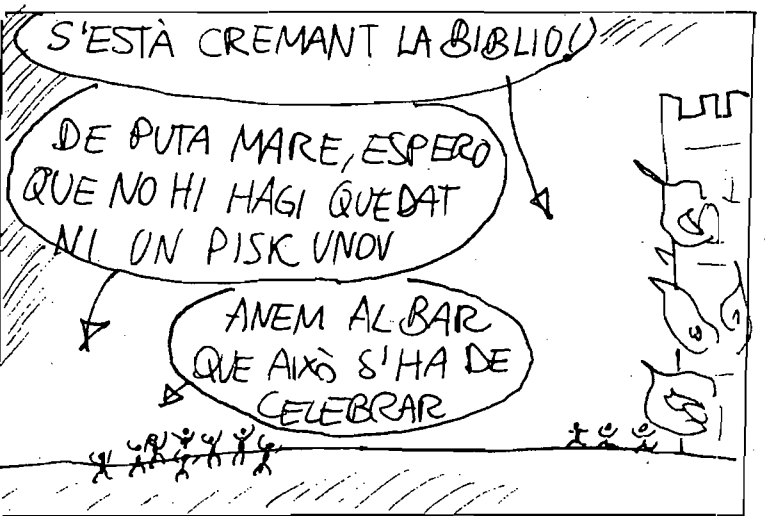 S'ESTÀ CREMANT LA BIBLIO!
DE PUTA MARE, ESPERO
QUE NO HI HAGI QUEDAT
NI UN PISKUNOV
ANEM AL BAR
QUE AIXÒ S'HA DE
CELEBRAR